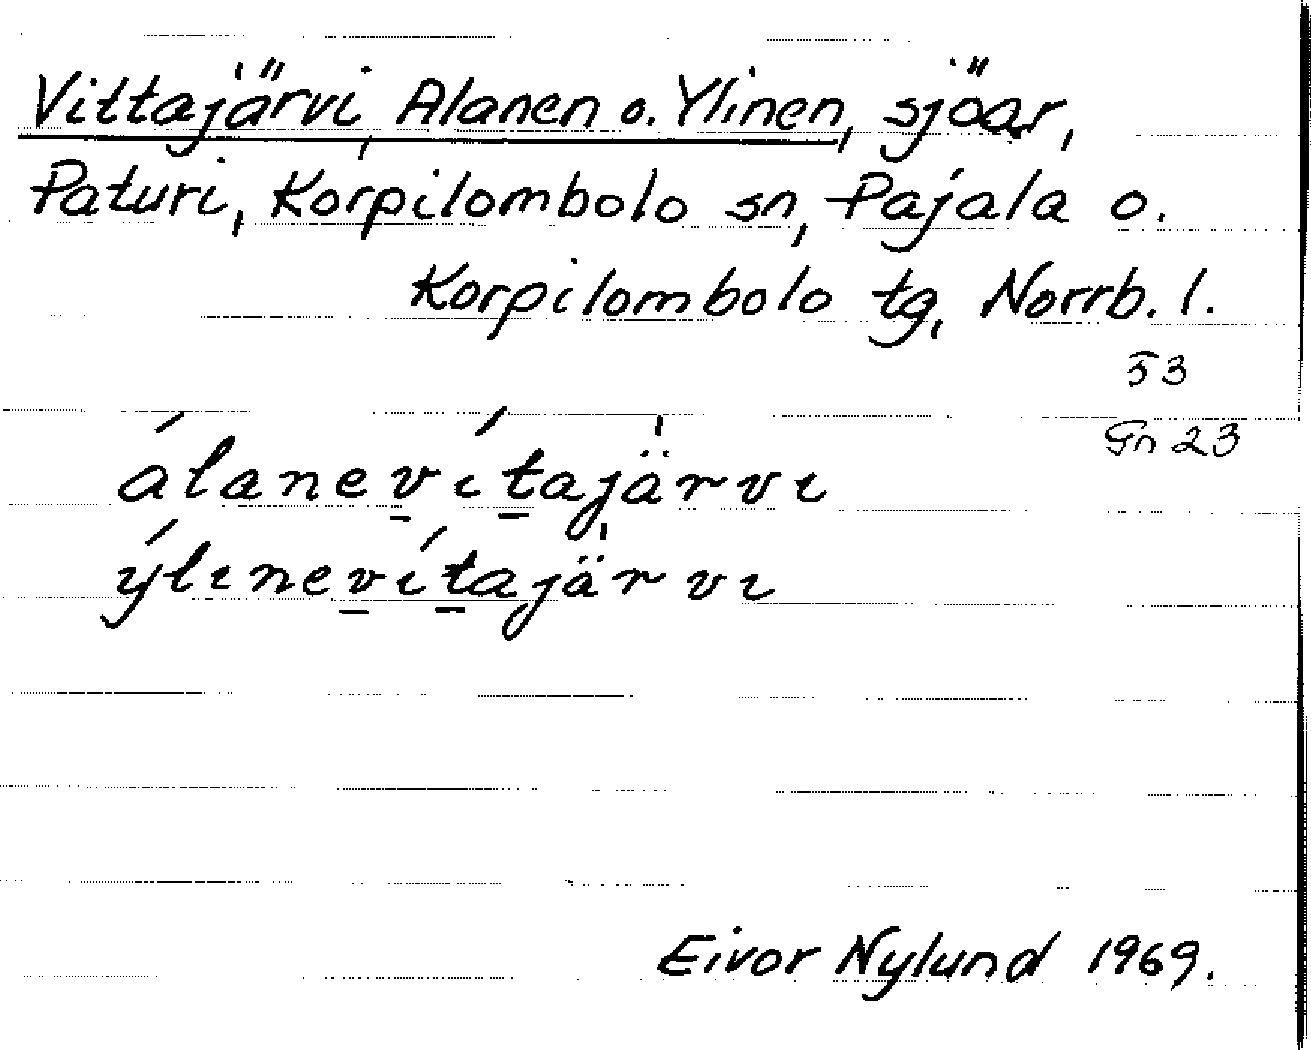 Vittajärvi, Alanen o. Ylinen, sjöar,
Paturi, Korpilombolo sn, Pajala o.
Korpilombolo tg, Norrb. l.
53
Gn 23
álanev̲ít̲ajärvɩ
ýlɩnev̲ít̲ajärvɩ
Eivor Nylund 1969.